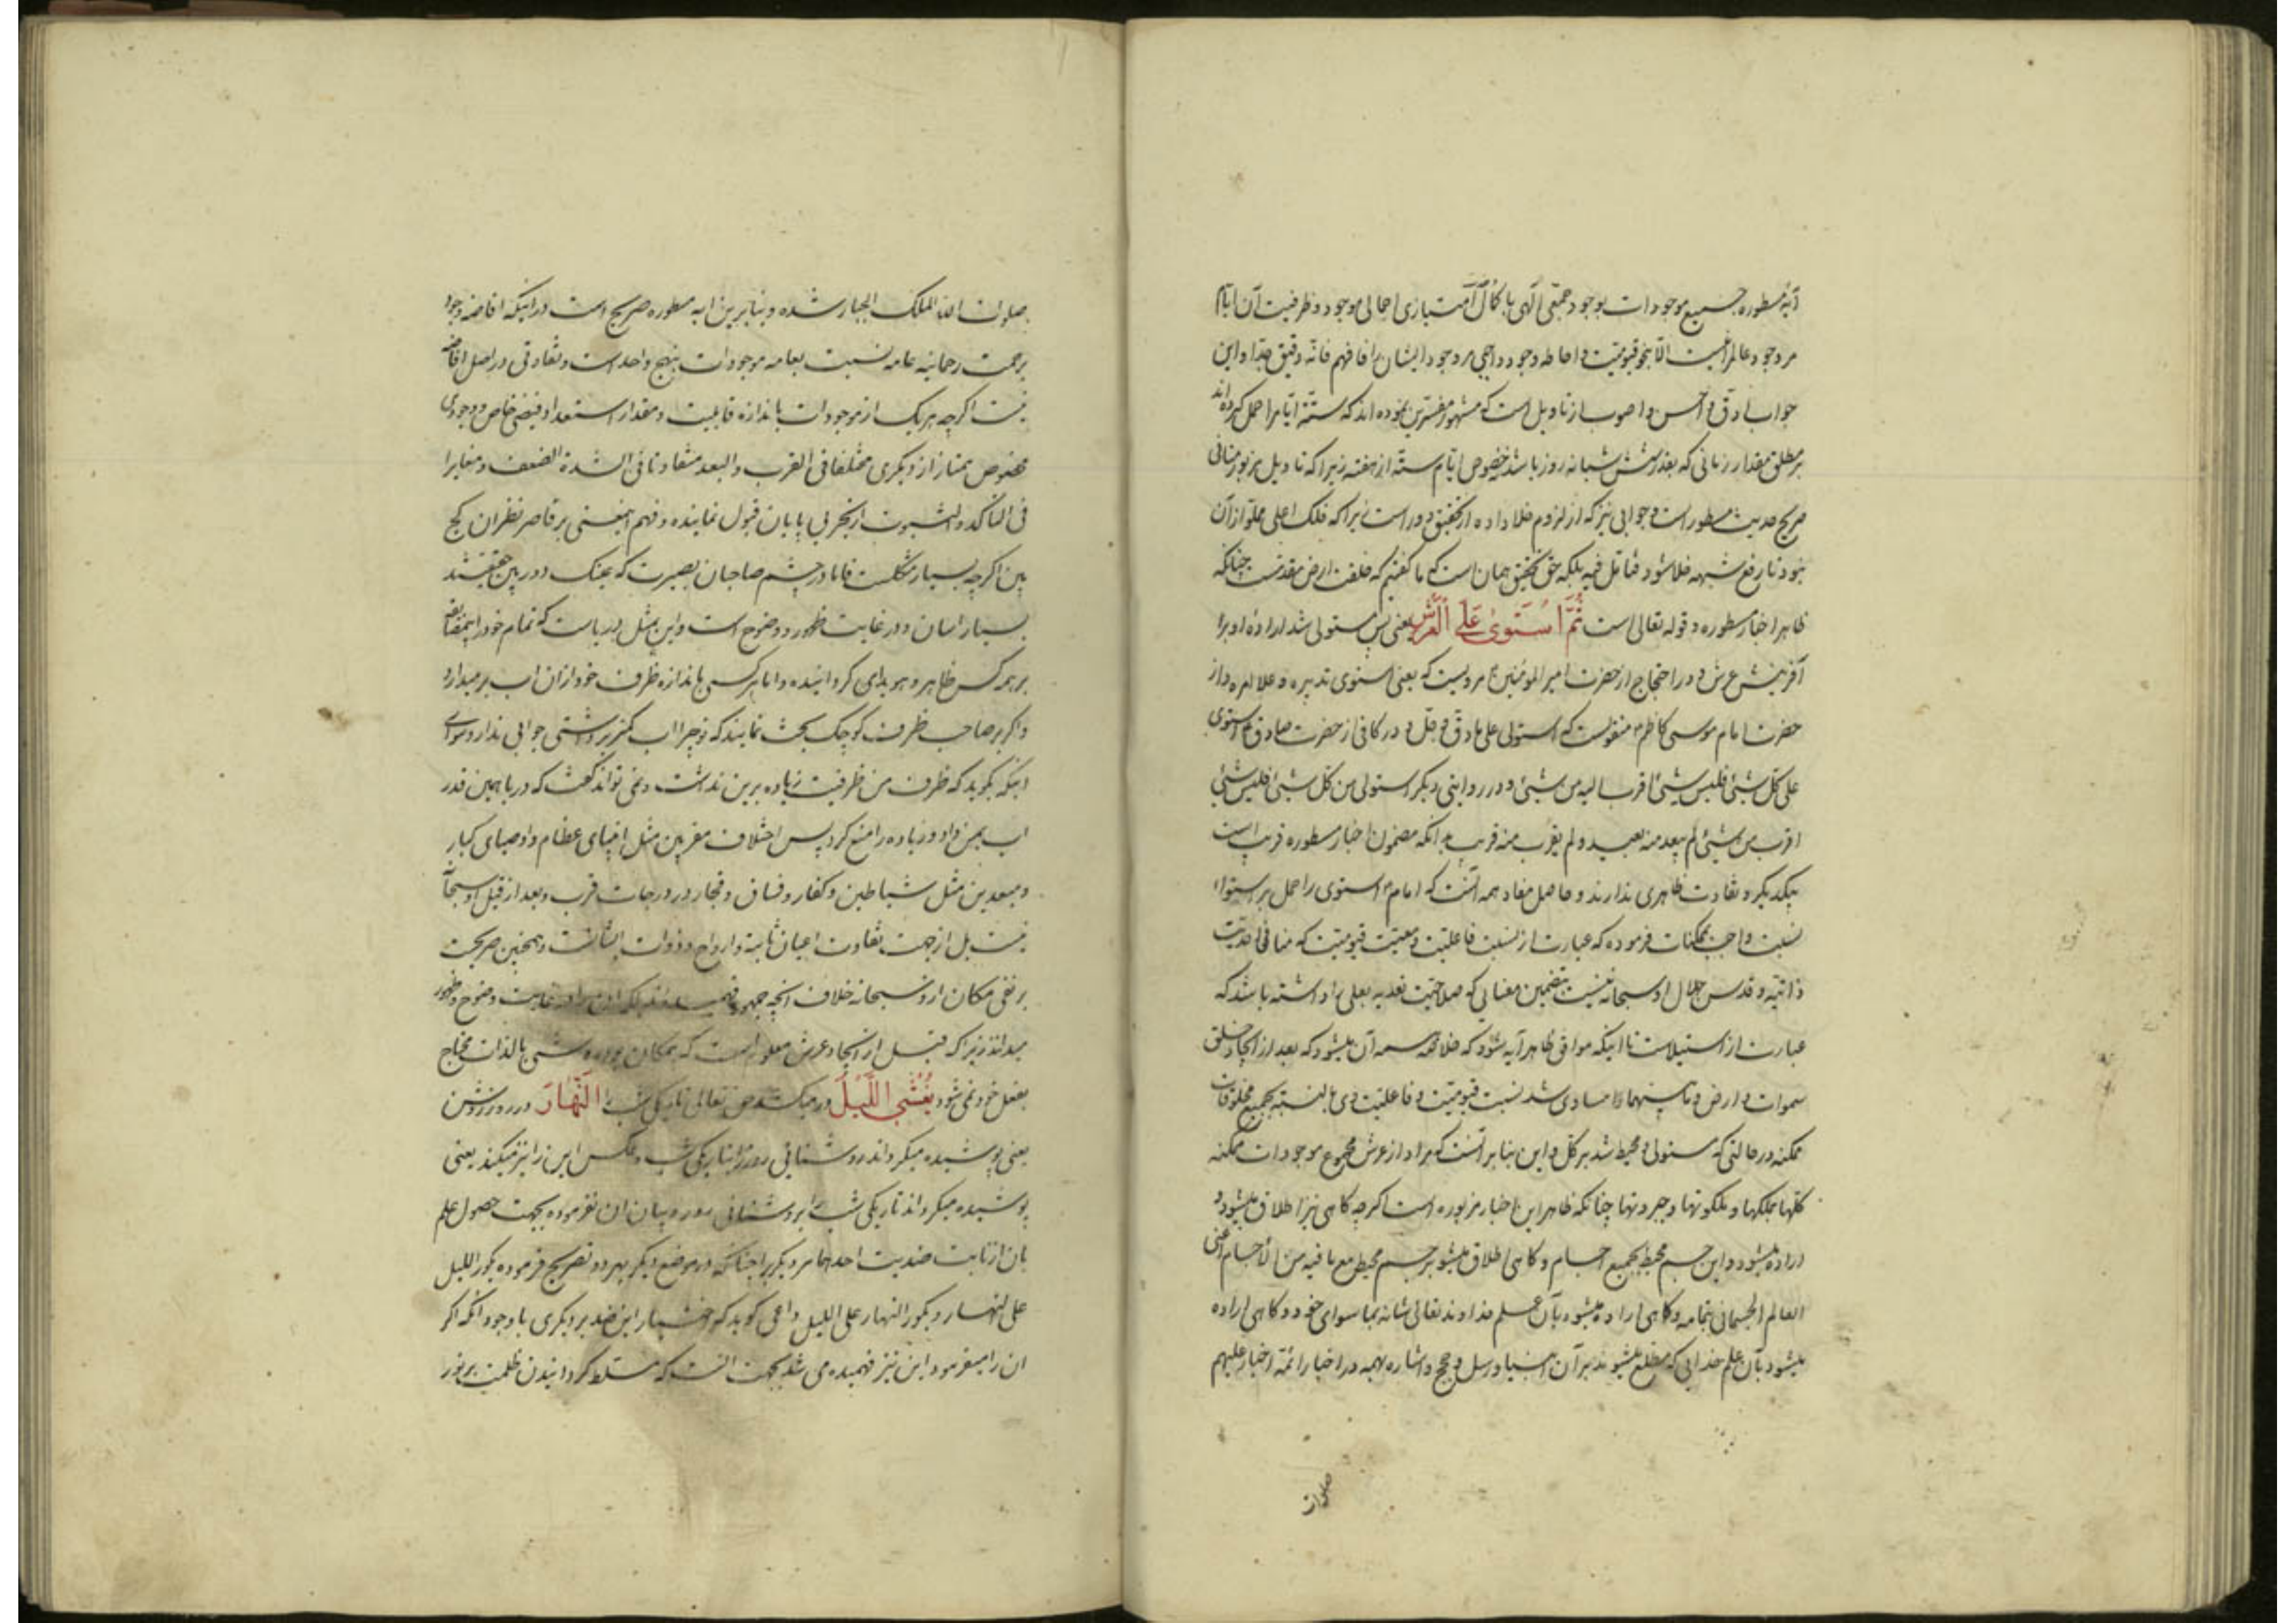 آیهٔ مسطوره جمیع موجودات بوجود جمعی الهی با کمال امتیازی اجمالی موجود و ظرفیت آن ایام
مر وجود عالم را نیست الا بنحو قیومیت و احاطه وجود واجبی مر وجود ایشان را فافهم فانه دقیق جدا و این
جواب ادق و احسن و اصوب از تاویل است که مشهور مفسرین نموده اند که ستة ایام را حمل کرده اند
بر مطلق مقدار زمانی که بقدر شش شبانه روز باشد نه خصوص ایام ستة از هفته زیرا که تاویل مزبور منافی
صریح حدیث مسطور است و جوابی نیز که از لزوم خلا داده از تحقیق دور است زیرا که فلک اعلی مملو از آن
نبود تا رفع شبهه خلا شود فتامل فیه بلکه حق تحقیق همان است که ما گفتیم که خلقت ارض مقدمست چنانکه
ظاهر اخبار مسطوره و قوله تعالی است ثُمَّ اسْتَوىٰ عَلَى الْعَرْشِ یعنی پس مستولی شد اراده او برا
آفرینش عرش و در احتجاج از حضرت امیر المؤمنین ع مرویست که یعنی استوی تدبیره و علا امره و از
حضرت امام موسی کاظم ع منقولست که استولی علی ما دق و جل و در کافی از حضرت صادق ع استوی
علی کل شیئ فلیس شیئ اقرب الیه من شیئ و در روایتی دیگر استولی من کل شیئ فلیس شیئ
اقرب من شیئ لم یبعد منه بعید و لم یقرب منه قریب بدانکه مضمون اخبار مسطوره قریب است
بیکدیگر و تفاوت ظاهری ندارند و حاصل مفاد همه آنست که امام ع استوی را حمل بر استواء
نسبت واجب بممکنات فرموده که عبارت از نسبت فاعلیت و معیت قیومیت که منافی احدیت
ذاتیه و قدس جلال او سبحانه نیست بتضمین معنائی که صلاحیت تعدیه بعلی را داشته باشد که
عبارت از استیلاست تا اینکه موافق ظاهر آیه شود که خلاصه آن میشود که بعد از ایجاد خلق
سموات و ارض و ما بینهما مساوی شد نسبت قیومیت و فاعلیت وی بالنسبة بجمیع مخلوقات
ممکنه در حالتی که مستولی و محیط شد بر کل و این بنا بر آنست که مراد از عرش مجموع موجودات ممکنه
کلها بملکها و ملکوتها و جبروتها چنانکه ظاهر این اخبار مزبوره است اگرچه گاهی نیز اطلاق میشود و
اراده میشود و این جسم محیط بجمیع اجسام و گاهی اطلاق میشود بر جسم محیط مع ما فیه من الاجسام اعنی
العالم الجسمانی بتمامه و گاهی اراده میشود بآن علم خداوند تعالی شانه بما سوای خود و گاهی اراده
میشود بآن علم خدایی که مطلع میشوند بر آن انبیا و رسل و حجج و اشاره بهمه در اخبار ائمه اخیار علیهم
صلوات
صلوات الله الملک الجبار شده و بنابرین ایه مسطوره صریح است در اینکه افاضه وجود
برحمت رحمانیه عامه نسبت بعامه موجودات بنهج واحد است و تفاوتی در اصل افاضه
نیست اگرچه هر یک از موجودات باندازه قابلیت و مقدار استعداد فیض خاص و وجودی
مخصوص ممتاز از دیگری مختلفا فی القرب والبعد متفاوتا فی الشدة والضعف و مغایرا
فی التاکد والثبوت از بحر بی پایان قبول نمایند و فهم اینمعنی بر قاصر نظران کج
بین اگرچه بسیار مشکلست فاما در چشم صاحبان بصیرت که عینک دوربین حقیقتند
بسیار اسان و در غایت ظهور و وضوح است و این بمثل دریاست که تمام خود را بمقتضای
بر همه کس ظاهر و هویدای گردانیده و اما هر کس باندازه ظرف خود از ان اب برمیدارد
و اگر بر صاحب ظرف کوچک بحث نمایند که تو چرا اب کمتر برداشتی جوابی ندارد سوای
اینکه بگوید که ظرف من ظرفیت زیاده برین نداشت و نمی تواند گفت که دریا همین قدر
اب بمن داد و زیاده را منع کرد پس اختلاف مقربین مثل انبیای عظام و اوصیای کبار
و مبعدین مثل شیاطین و کفار و فساق و فجار در درجات قرب و بعد از قبل او سبحانه
نیست بل از جهت تفاوت اعیان ثابته و ارواح و ذوات ایشانست و همچنین صریحست
بر نفی مکان از و سبحانه خلاف انچه جمهور فهمیده اند بلکه ان را در غایت وضوح و ظهور
میداند زیرا که قبل از ایجاد عرش معلوم است که بمکان نبوده و شیئ بالذات محتاج
بفعل خود نمی شود یُغْشِی اللَّیْلَ در میکشد حق تعالی تاریکی شب را النَّهَارَ در روز روشن
یعنی پوشیده میگرداند روشنائی روز را بتاریکی شب و عکس این را نیز میکند یعنی
پوشیده میگرداند تاریکی شب را بروشنائی روز و بیان ان نفرموده بجهت حصول علم
بان از ثابت ضدیت احدهما مر دیگر را چنانکه در موضع دیگر بهر دو تصریح فرموده یکور اللیل
علی النهار و یکور النهار علی اللیل و اعی گوید که اختیار این ضد بر دیگری با وجود آنکه اگر
ان را میفرمود این نیز فهمیده می شد بجهت انست که مسلط گردانیدن ظلمت بر نور